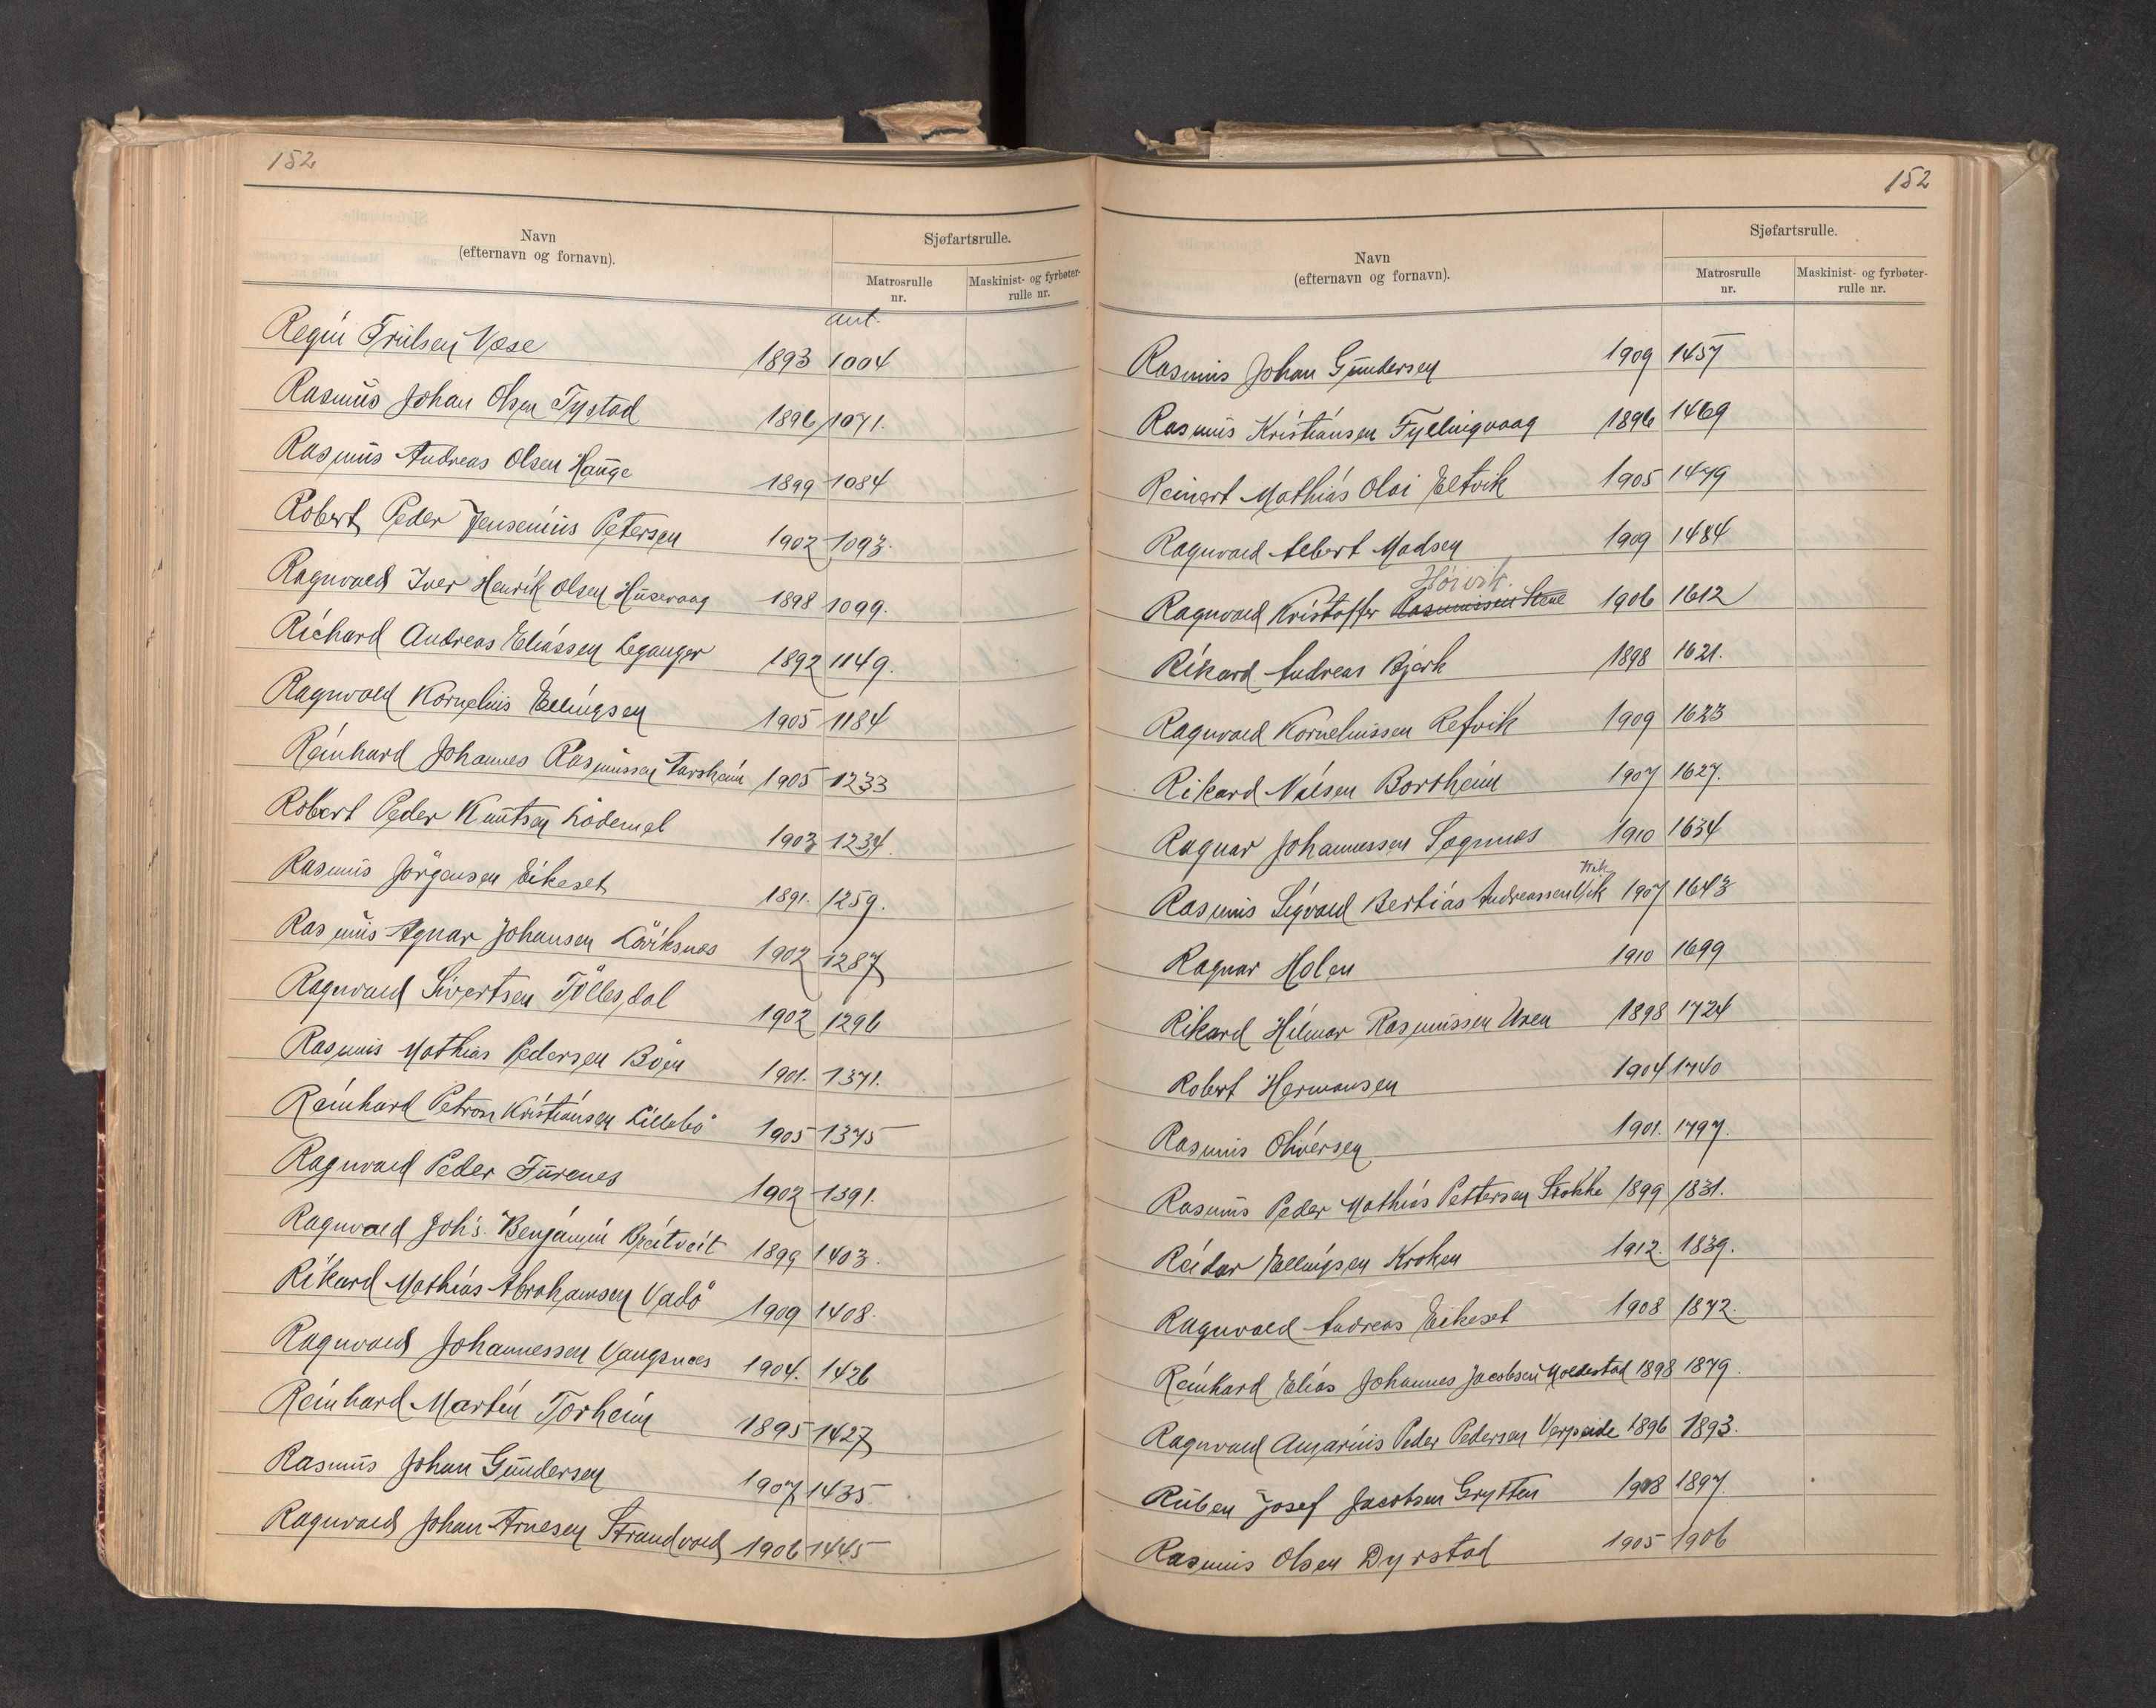 152
Navn
(efternavn og fornavn).
Sjøfartsrulle.
Matrosrulle
nr.
Maskinist- og fyrbøter-
rulle nr.
ant.
Regin Vase 1893 1004
Rasmus Johan Olsen Tystad 1896 1071.
Rasmus Andreas Olsen Hauge 1899 1084
Robert Peder Jensenius Petersen 1902 1093.
Ragnvald Iver Henrik Olsen Husevaag 1898 1099.
Richard Andreas Eliassen Leganger 1892 1149.
Ragnvald Kornelius Ellingsen 1905 1184
Reinhard Johannes Rasmussen Aarsheim 1905 1233
Robert Peder Knutsen Lödemel 1903 1234.
Rasmus Jörgensen Eikeset 1891. 1259.
Rasmus Agnar Johansen 1902 1287
Ragnvald Sivertsen 1902 1296
Rasmus Mathias Pedersen Böen 1901. 1371.
Reinhard Petron Kristiansen Lillebö 1905 1375
Ragnvald Peder Furenes 1902 1391.
Ragnvald Joh's. Benjamin Breitveit 1899 1403.
Rikard Mathias Abrahamsen Vadö 1909 1408.
Ragnvald Johannessen Vangsnes 1904. 1426
Reinhard Martin Torheim 1895 1427
Rasmus Johan Gundersen 1907 1435
Ragnvald Johan Arnesen Strandvold 1906 1445
152
Navn
(efternavn og fornavn).
Sjøfartsrulle.
Matrosrulle
nr.
Maskinist- og fyrbøter-
rulle nr.
Rasmus Johan Gundersen 1909 1457
Rasmus Kristiansen Fyllingvaag 1896 1469
Reinert Mathias Olai Eltvik 1905 1479
Ragnvald Albert Madsen 1909 1484
Hörvik.
Ragnvald Kristoffer Rasmussen Stene 1906 1612
Rikard Andreas Bjørk 1898 1621.
Ragnvald Korneliussen Refvik 1909 1623
Rikard Nilsen Bortheim 1907 1627.
Ragnar Johannessen Sognnes 1910 1634
Vik
Rasmus Sigvald Bertias Andreassen Vik 1907 1643
Ragnar Holen 1910 1699
Rikard Hilmar Rasmussen Uren 1898 1724
Robert Hermansen 1904 1740
Rasmus Oliversen 1901. 1797.
Rasmus Peder Mathias Pettersen Stokke 1899 1831.
Reidar Ellingsen Kroken 1912. 1839.
Ragnvald Andreas Eikeset 1908 1872.
Reinhard Elias Johannes Jacobsen Moldestad 1898 1879.
Ragnvald Angarius Peder Pedersen Verpeide 1896 1893.
Ruben Josef Jacobsen Grytten 1908 1897.
Rasmus Olsen Dyrstad 1905 1906